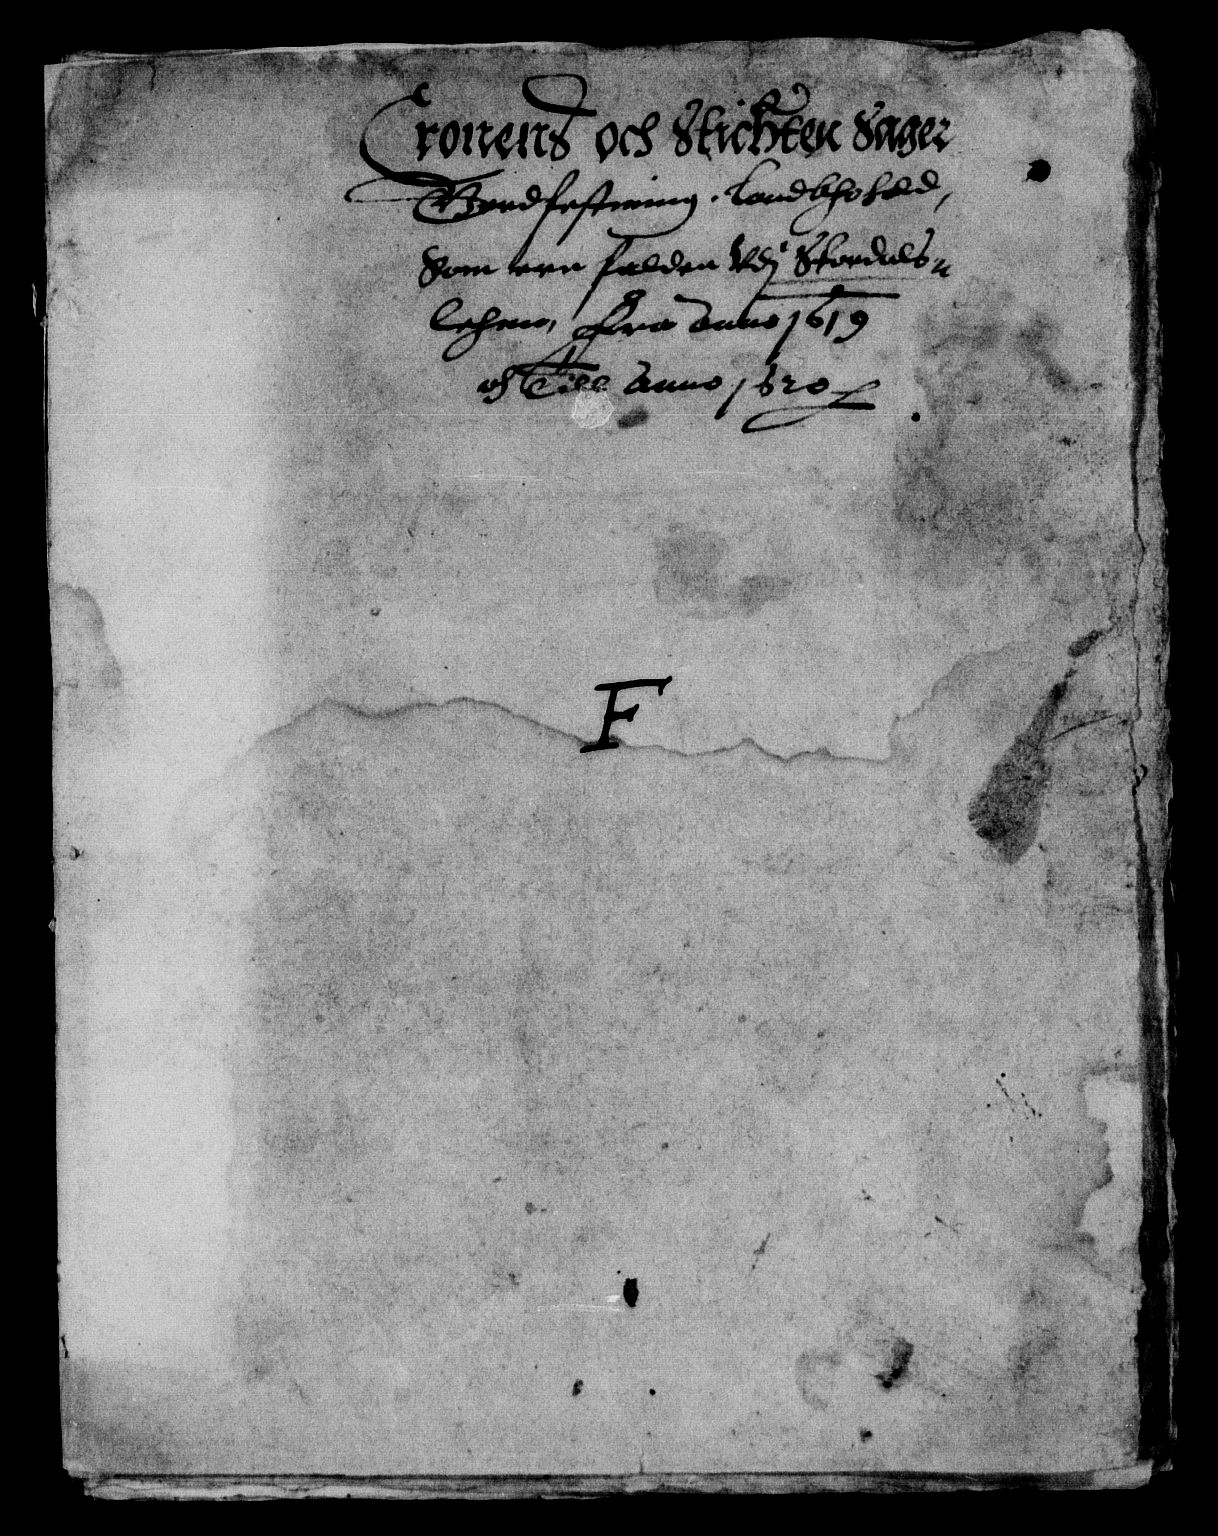 Cronens och Stichten Sager
Bordfestning, Landbhohold,
Som ere falden Vdj Stordals
lehenn, fra Anno 1619
och Till Anno 1620
F